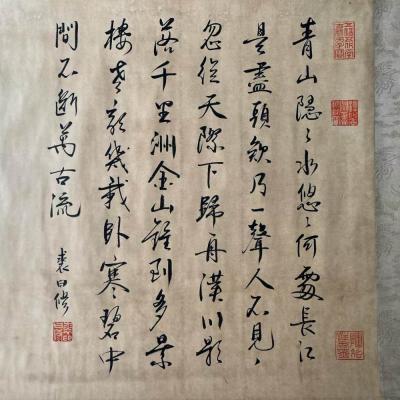 青山隐〻水悠〻何處長江
是盡頭欸乃一聲人不見〻
忽從天際下歸舟漢川影
落千里洲金山鐘到多景
樓老去幾載卧寒碧中
間不斷萬古流
裘曰修